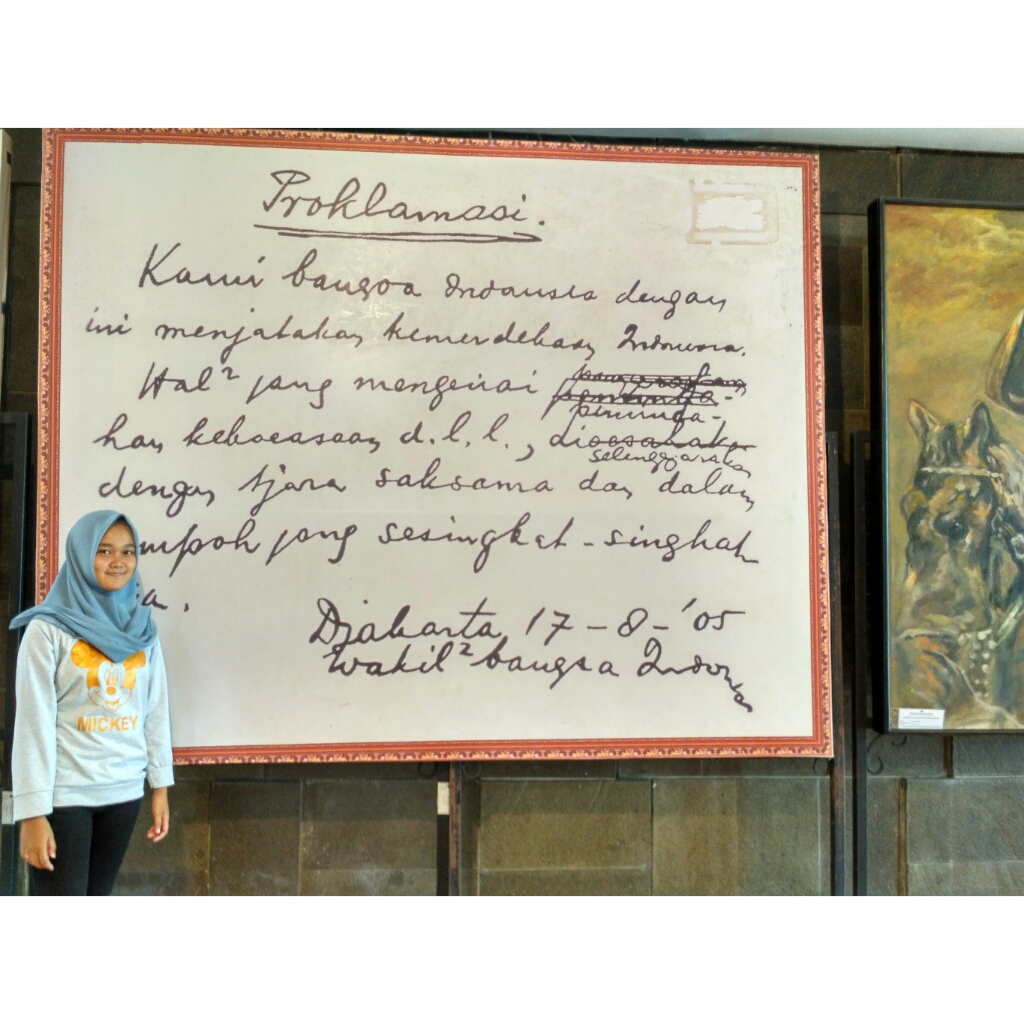 Proklamasi.
Kami bangsa Indonesia dengan
ini menjatakan kemerdekaan Indonesia.
Hal² jang mengenai
peminda-
han kekoeasaan d.l.l., dioesahakan
selenggarakan
dengan tjara saksama dan dalam
mpoh jang sesingkat-singkat
a.
Djakarta 17-8-'05
Wakil² bangsa Indonesia
MICKEY